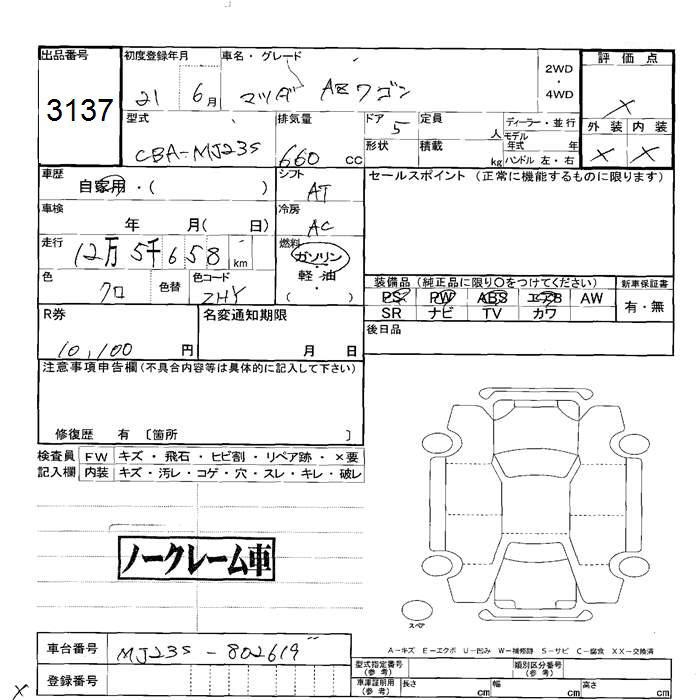 出品番号 初度登録年月 車名・グレード 2WD ・ 4WD 評価点
3137 21 6月 マツダ AZワゴン ×
型式 排気量 ドア 定員 ディーラー・並行 外装 内装
CBA-MJ23S 660cc 5 人 モデル年式 年 × ×
形状 積載 kg ハンドル 左・右
車歴 自家用・( ) シフト AT セールスポイント (正常に機能するものに限ります)
車検 年 月( 日) 冷房 AC
走行 12万5千658km 燃料 ガソリン 軽油 ・( )
色 クロ 色替 色コード ZHY
装備品 (純正品に限り○をつけてください) 新車保証書
PS PW ABS エアB AW 有・無
SR ナビ TV カワ
R券 10,100円 名変通知期限 月 日 後日品
注意事項申告欄(不具合内容等は具体的に記入して下さい)
修復歴 有 〔箇所 〕
検査員記入欄 FW キズ・飛石・ヒビ割・リペア跡・×要
内装 キズ・汚レ・コゲ・穴・スレ・キレ・破レ
ノークレーム車
スペア
A-キズ E-エクボ U-凹み W-補修跡 S-サビ C-腐食 XX-交換済
車台番号 MJ23S-802619
登録番号
型式指定番号(参考) 類別区分番号(参考)
車庫証明用(参考) 長さ cm 幅 cm 高さ cm
×